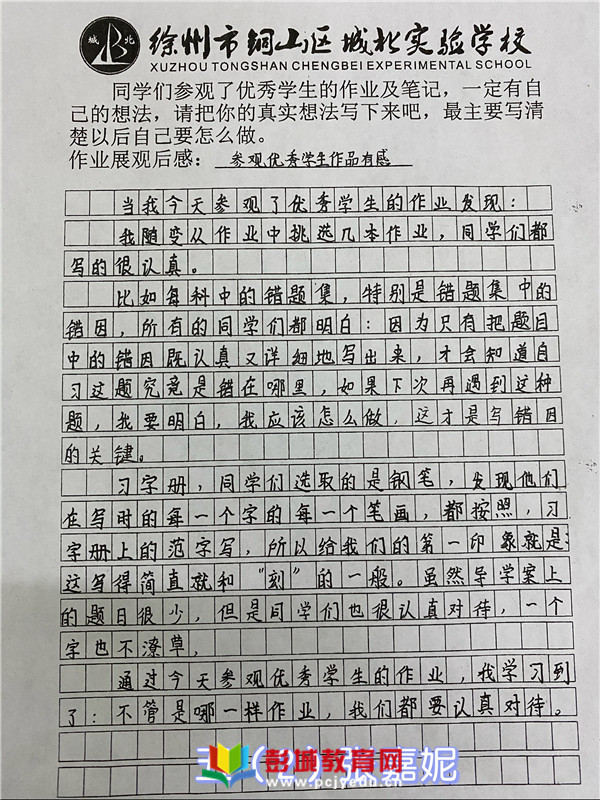 城北
徐州市铜山区城北实验学校
XUZHOU TONGSHAN CHENGBEI EXPERIMENTAL SCHOOL
同学们参观了优秀学生的作业及笔记，一定有自
己的想法，请把你的真实想法写下来吧，最主要写清
楚以后自己要怎么做。
作业展观后感：参观优秀学生作品有感
当我今天参观了优秀学生的作业发现：
我随变从作业中挑选几本作业，同学们都
写的很认真。
比如每科中的错题集，特别是错题集中的
错因，所有的同学们都明白：因为只有把题目
中的错因既认真又详细地写出来，才会知道自
习这题究竟是错在哪里，如果下次再遇到这种
题，我要明白，我应该怎么做，这才是写错因
的关键。
习字册，同学们选取的是钢笔，发现他们
在写时的每一个字的每一个笔画，都按照，习
字册上的范字写，所以给我们的第一印象就是：
这写得简直就和“刻”的一般。虽然导学案上
的题日很少，但是同学们也很认真对待，一个
字也不潦草，
通过今天参观优秀学生的作业，我学习到
了：不管是哪一样作业，我们都要认真对待。
(2)张嘉妮
彭城教育网
www.pcjyedu.cn